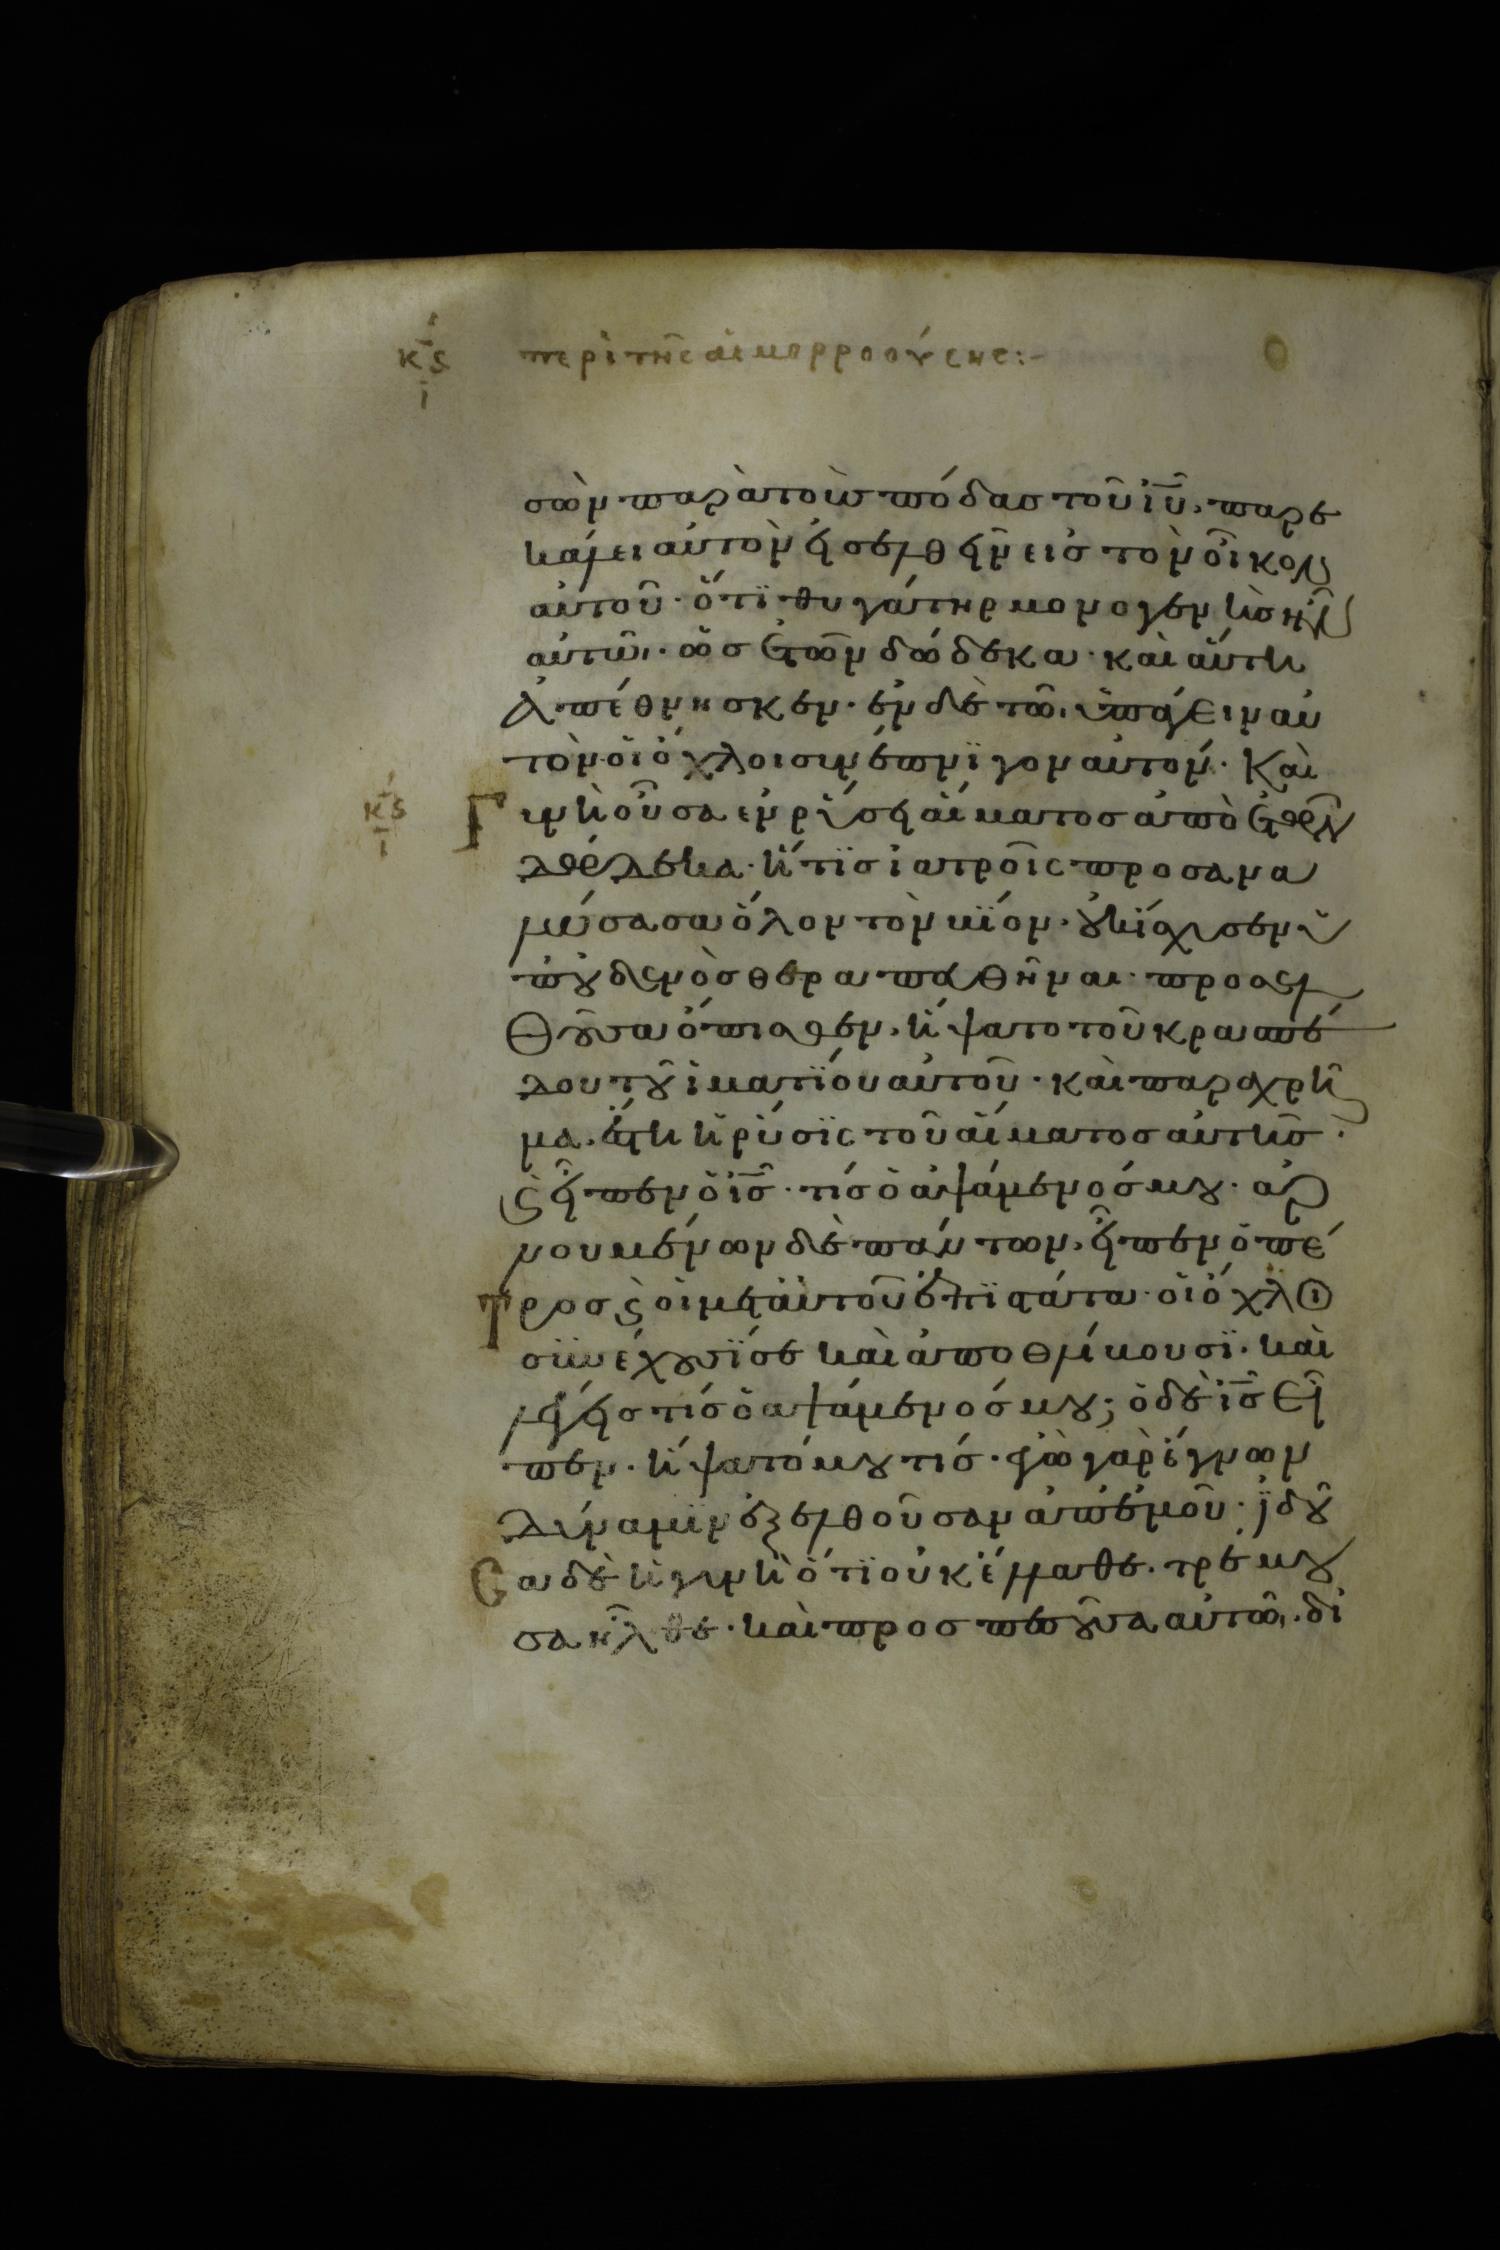 κς περὶ τῆς αἱμορροούσης:-
σὼν παρὰ τοὺσ πόδασ τοῦ ἰῦ, παρε
κάλει αὐτὸν εἰσελθεῖν εἰσ τὸν οἶκον
αὐτοῦ· ὅτϊ θυγάτηρ μονογενὴσ ἦν
αὐτῶ· ὡσ ἐτῶν δώδεκα· καὶ αὕτη
ἀπέθνησκεν· ἐν δὲ τῶ ὑπάγειν αὐ
τὸν οἱ ὄχλοι συνέπνϊγον αὐτόν· Καὶ
κς Γυνὴ οὖσα ἐν ῥύσει αἵματοσ ἀπὸ ἐτῶν
δώδεκα· ἥτϊσ ἰατροῖς προσανα
λώσασα ὅλον τὸν βίον· οὐκ ἴσχυσεν ὑ
π' οὐδενὸσ θεραπευθῆναι· προσελ
θοῦσα ὄπισθεν, ἥψατο τοῦ κρασπέ
δου τοῦ ἱματΐου αὐτοῦ· καὶ παραχρῆ
μα ἔστη ἡ ῥύσϊς τοῦ αἵματοσ αὐτῆσ·
ϛ εἶπεν ὁ ἰσ· τίσ ὁ ἁψάμενόσ μου· ἀρ
νουμένων δὲ πάντων, εἶπεν ὁ πέ
τροσ ϛ οἱ μετ' αὐτοῦ ἐπϊστάτα· οἱ ὄχλοι
συνέχουσΐ σε καὶ ἀποθλίβουσϊ· καὶ
λέγεισ τίσ ὁ ἁψάμενόσ μου; ὁ δὲ ἰσ εἶ
πεν· ἥψατό μου τίσ· ἐγὼ γὰρ ἔγνων
δύναμϊν ἐξελθοῦσαν ἀπ' ἐμοῦ· ἰδοῦ
σα δὲ ἡ γυνὴ ὅτϊ οὐκ ἔλαθε· τρέμου
σα ἦλθε· καὶ προσπεσοῦσα αὐτῶ· δι